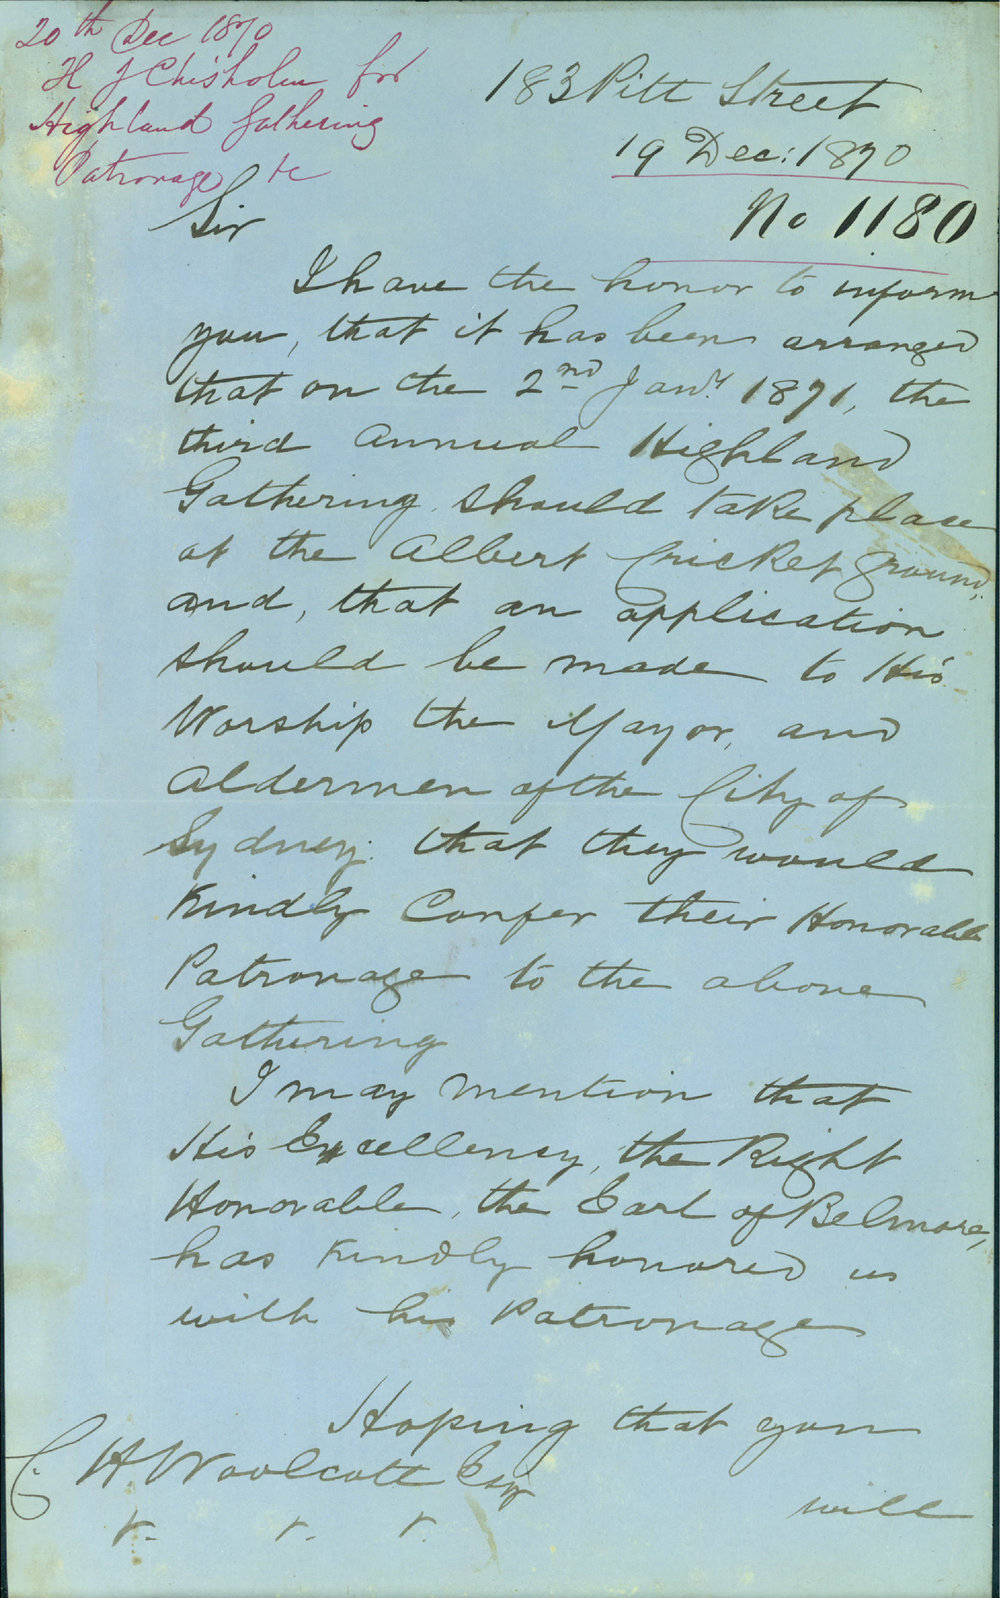 20th Dec 1870
H J Chisholm for
Highland Gathering
Patronage &c
183 Pitt Street
19 Dec: 1870
No 1180
Sir
I have the honor to inform
you, that it has been arranged
that on the 2nd Jany. 1871, the
third Annual Highland
Gathering should take place
at the Albert Cricket ground,
and, that an application
should be made to His
Worship the Mayor, and
Aldermen of the City of
Sydney: that they would
Kindly Confer their Honorable
Patronage to the above
Gathering
I may mention that
His Excellency, the Right
Honorable, the Earl of Belmore,
has Kindly honored us
with his Patronage
Hoping that you
C. H Woolcott Esqr
will
&. &. &.